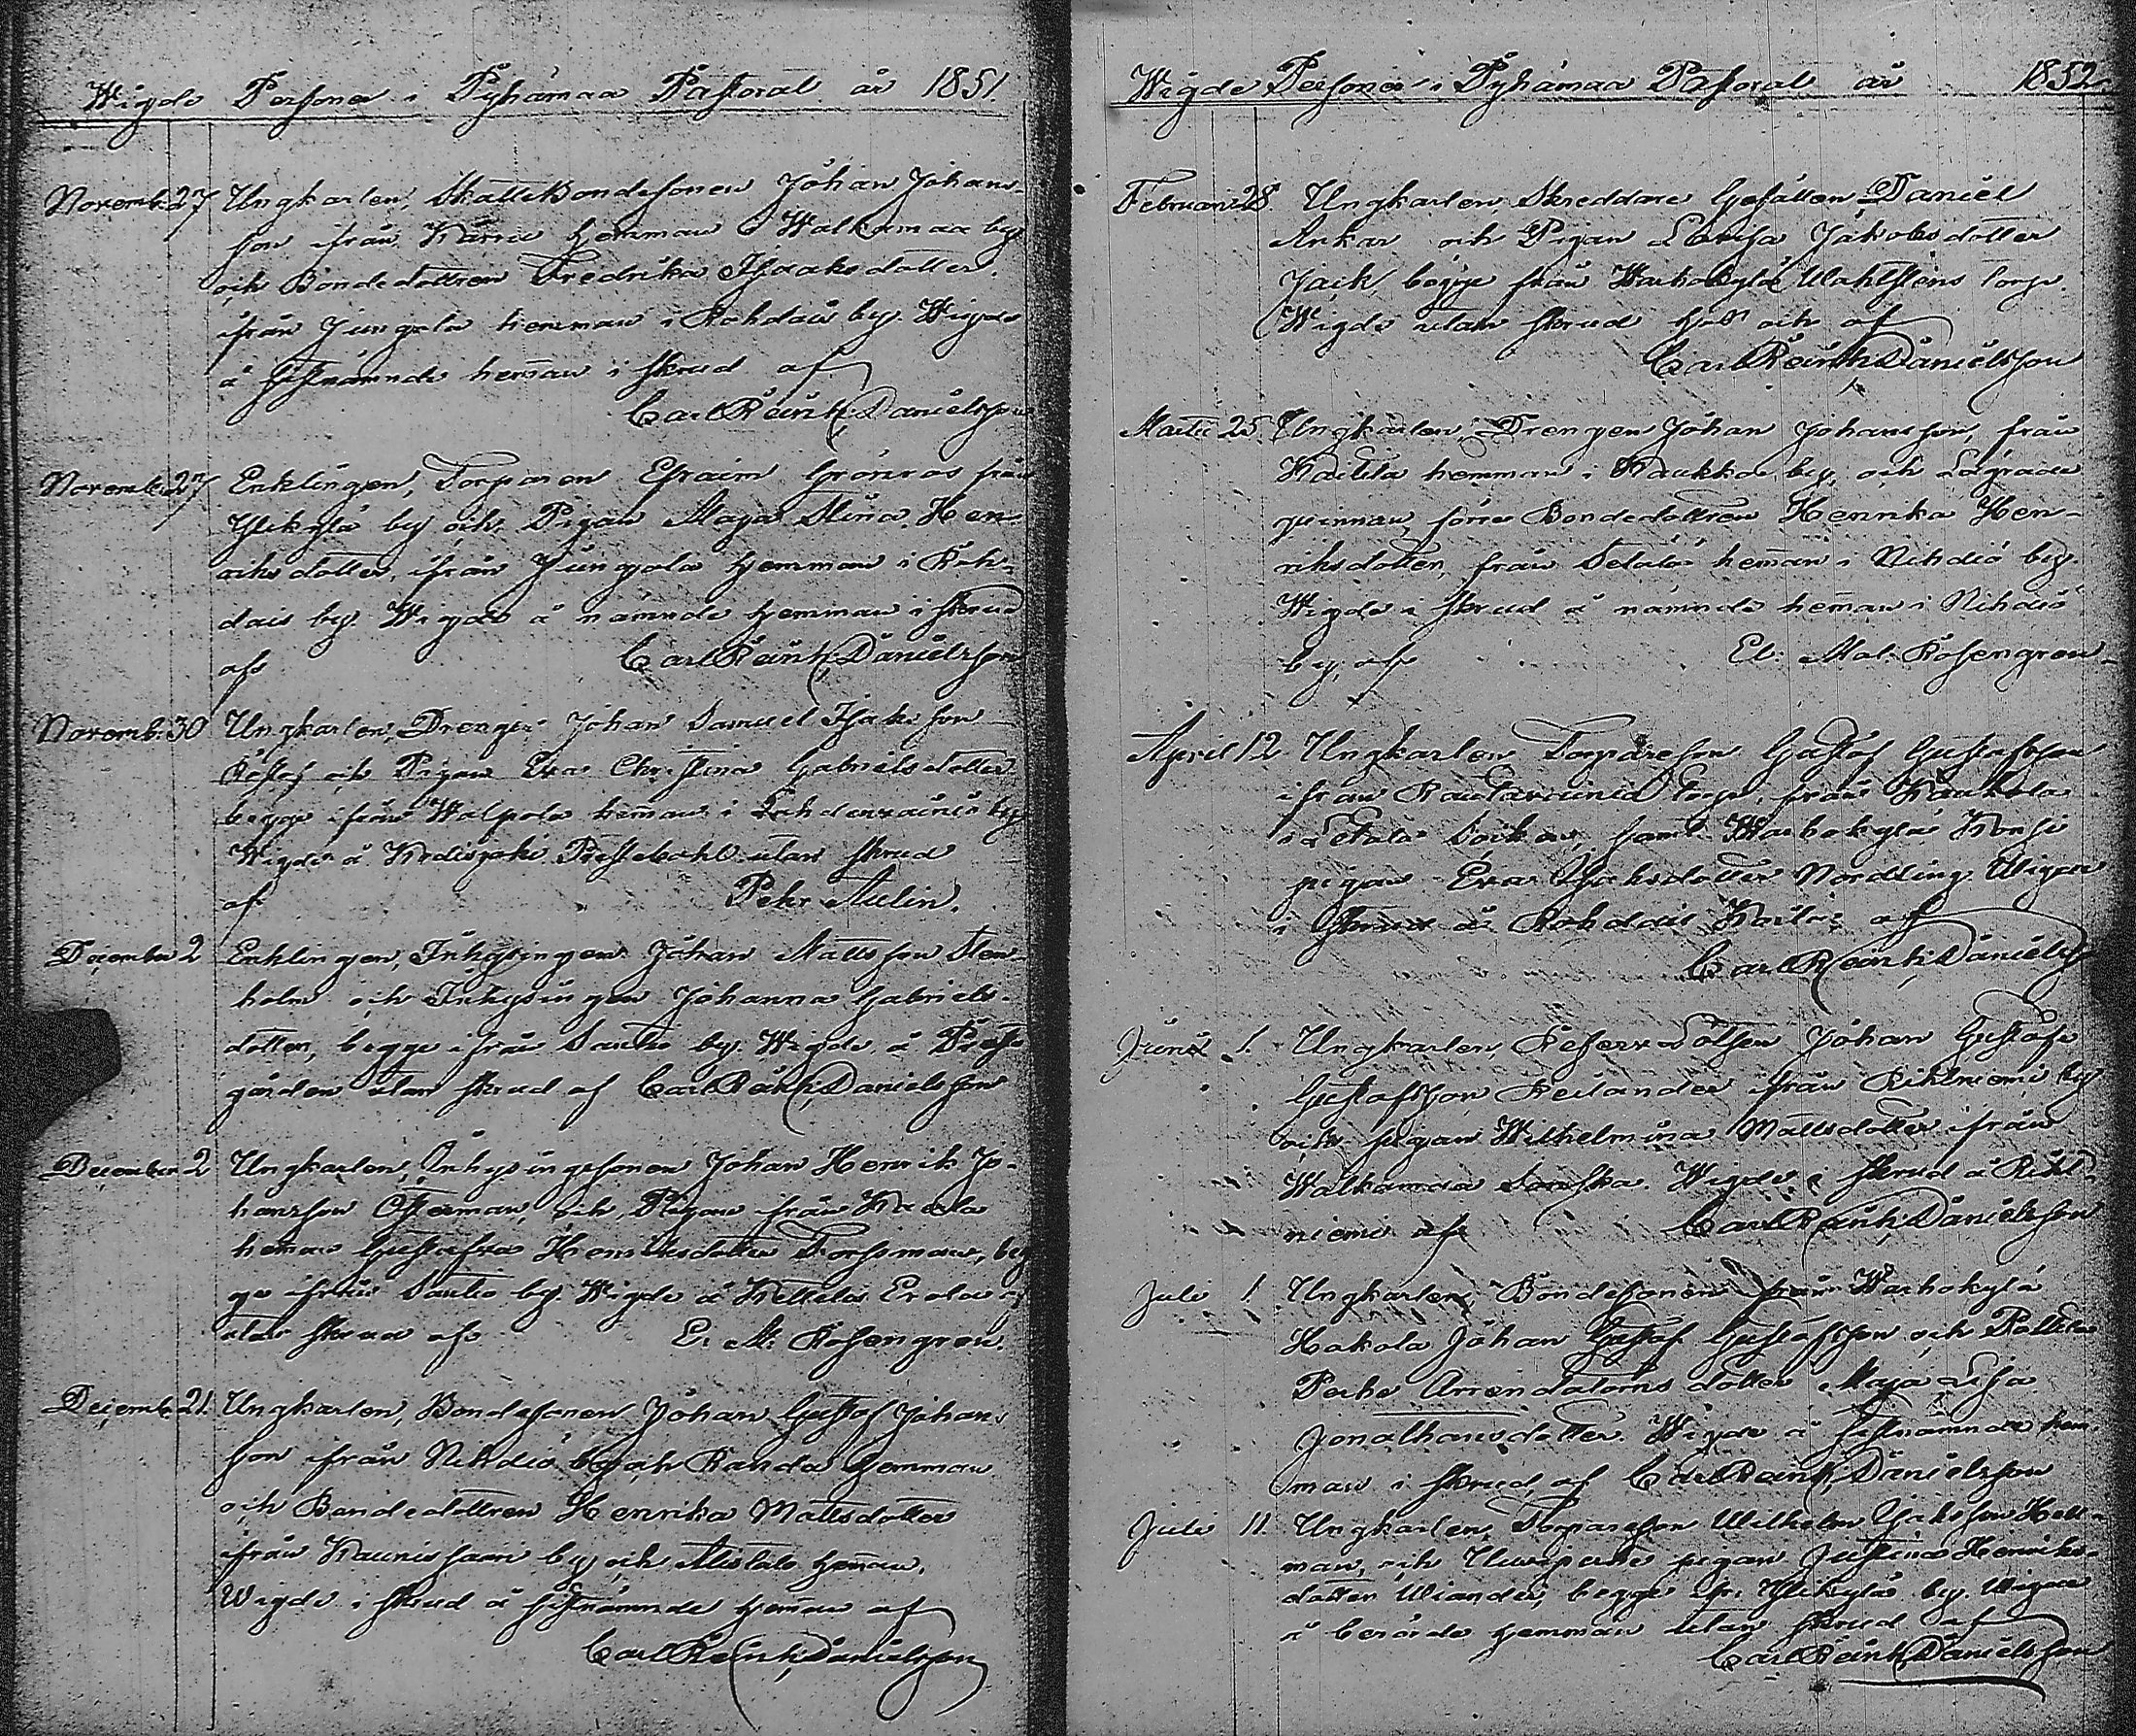 Wigde Personer i Pyhämaa Pastorat år 1851.
Novemb. 27 Ungkarlen, Skattebondesonen Johan Johans-
son ifrån hemman i Walkamaa by
och Bondedottren Fredrika Isaaksdotter
ifrån Jungola hemman i Rohdais by. Wigde
å sistnämnde heman i skrud af
Carl Reinh. Danielsson
Novemb. 27 Enklingen, Torparen Efraim Grönroos från
Ylikylä by och Pigan Maja Stina Hen-
riksdotter, ifrån Jungola hemman i Roh-
dais by. Wigde å nämnde hemman i skrud
af Carl Reinh. Danielsson
Novemb. 30 Ungkarlen, Drengen Johan Samuel Isaksson
och Pigan Eva Christina Gabrielsdotter
begge ifrån Walpola heman i by
Wigde å Prestebohl utan skrud
af Pehr Aulin.
December 2 Enklingen, Inhysingen Johan Mattsson Sten-
holm och Inhysingen Johanna Gabriels-
dotter, begge ifrån Santio by. Wigde å Prest-
gården utan skrud af Carl Reinh. Danielsson
December 2 Ungkarlen, Inhysingesonen Johan Henrik Jo-
hansson Österman, och Pigan från
heman Gustafva Henriksdotter Forssman, beg-
ge ifrån Santio by. Wigde å Kettela
utan skrud af E. M. Rosengren.
Decemb. 21. Ungkarlen, Bondesonen Johan Gustaf Johans-
son ifrån Nihdiö by och Randa hemman
och Bondedottren Henrika Mattsdotter
ifrån Kaunissaari by och Alistalo heman.
Wigde i skrud å sistnämnde heman af
Carl Reinh. Danielsson
Wigde Personer i Pyhämaa Pastorat år 1852.
Februari 28. Ungkarlen, Skreddare Gesällen Daniel
Ankar och Pigan Lovisa Jakobsdotter
Jaik, begge från Warhokylä Wahlstens torp.
Wigde utan skrud och af
Carl Reinh. Danielsson
Martii 25. Ungkarlen, Drengen Johan Johansson, från
Kaitila hemman i Kaukka by, och Lägrade
qvinnan, förre Bondedottren Henrika Hen-
riksdotter, från Setälä heman i Nihdiö by.
Wigde i skrud å nämnde heman i Nihdiö
by, af El: Mat. Rosengren
April 12 Ungkarlen Torparesonen Gustaf Gustafsson
ifrån torp, från Kaukola
i Letala Socken, samt Warhokylä
pigan Eva Isaksdotter Nordling. Wigde
i skrud å Rohdais af
Carl Reinh. Daniels
Junii 1. Ungkarlen, Reserv Lotsen Johan Gustaf
Gustafsson Reilander ifrån Rihtniemi by
och pigan Wilhelmina Mattsdotter ifrån
Walkamaa Wigde i skrud å Riht-
niemi af Carl Reinh. Danielsson
Juli 1 Ungkarlen, Bondesonen från Warhokylä
Hakola Johan Gustaf Gustafsson och
Arrendatorns dotter Maja Lisa
Jonathansdotter. Wigde å sistnämnde hem-
man i skrud, af Carl Reinh. Danielsson
Juli 11. Ungkarlen, Torparesson Wilhelm Isaksson Hell-
man, och pigan Justina Henriks-
dotter Wiander, begge fr. Ylikylä by. Wigde
å berörde hemman utan skrud af
Carl Reinh. Danielsson